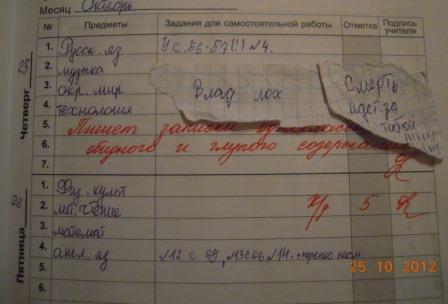 Месяц Октябрь
№ Предметы Задания для самостоятельной работы Отметка Подпись учителя
Четверг 25
1. Русск. яз У с. 56-57 (!) №4.
2. музыка
3. окр. мир
4. технология
5.
6.
7.
Влад лох
Смерть
идет за
тобой
!!!!!!
Пишет записки однокласс
обидного и глупого содержания
Пятница 26
1. Физ. культ
2. лит. чтение К/р 5
3. математ
4. англ. яз №12 с 65, №3 с 66 №14.
5.
6.
25 10 2012